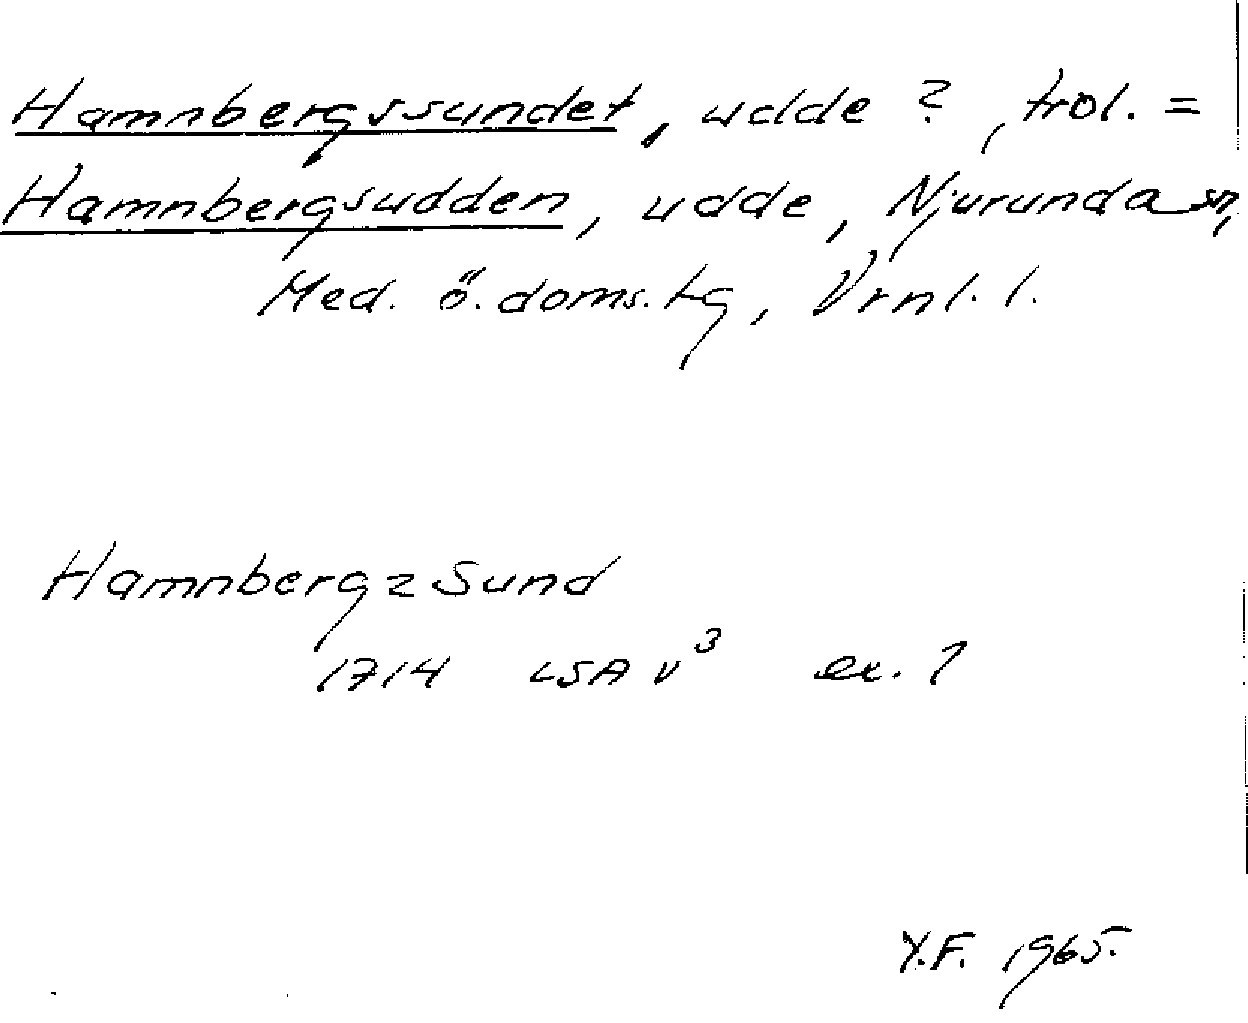 Hamnbergssundet, udde?, trol. =
Hamnbergsudden, udde, Njurunda sn,
Med. ö. doms. tg, Vrnl. l.
Hamnbergz Sund
1714 LSA V³ ex. 1
Y.F. 1965.